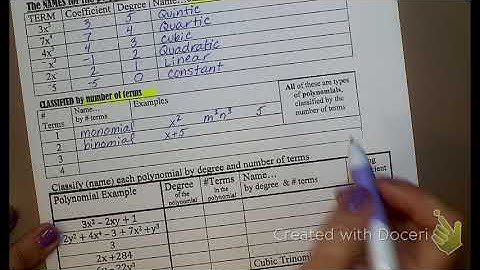 The NAMES for the
TERM Coefficient Degree Name...
3x⁵ 3 5 Quintic
7x⁴ 7 4 Quartic
4x³ 4 3 Cubic
2 Quadratic
1 Linear
-5 -5 0 constant
CLASSIFIED by number of terms
# Terms Name... by # terms Examples
1 monomial x² m³n³ 5
2 binomial x+5
3
4
All of these are types of polynomials, classified by the number of terms
Classify (name) each polynomial by degree and number of terms
Polynomial Example Degree of the polynomial #Terms in the polynomial Name... by degree & # terms
3x² – 2xy + 1
2y² + 4x⁴ – 3 + 7x² + y³
3
2x + 284
Cubic Trinom
Created with Doceri